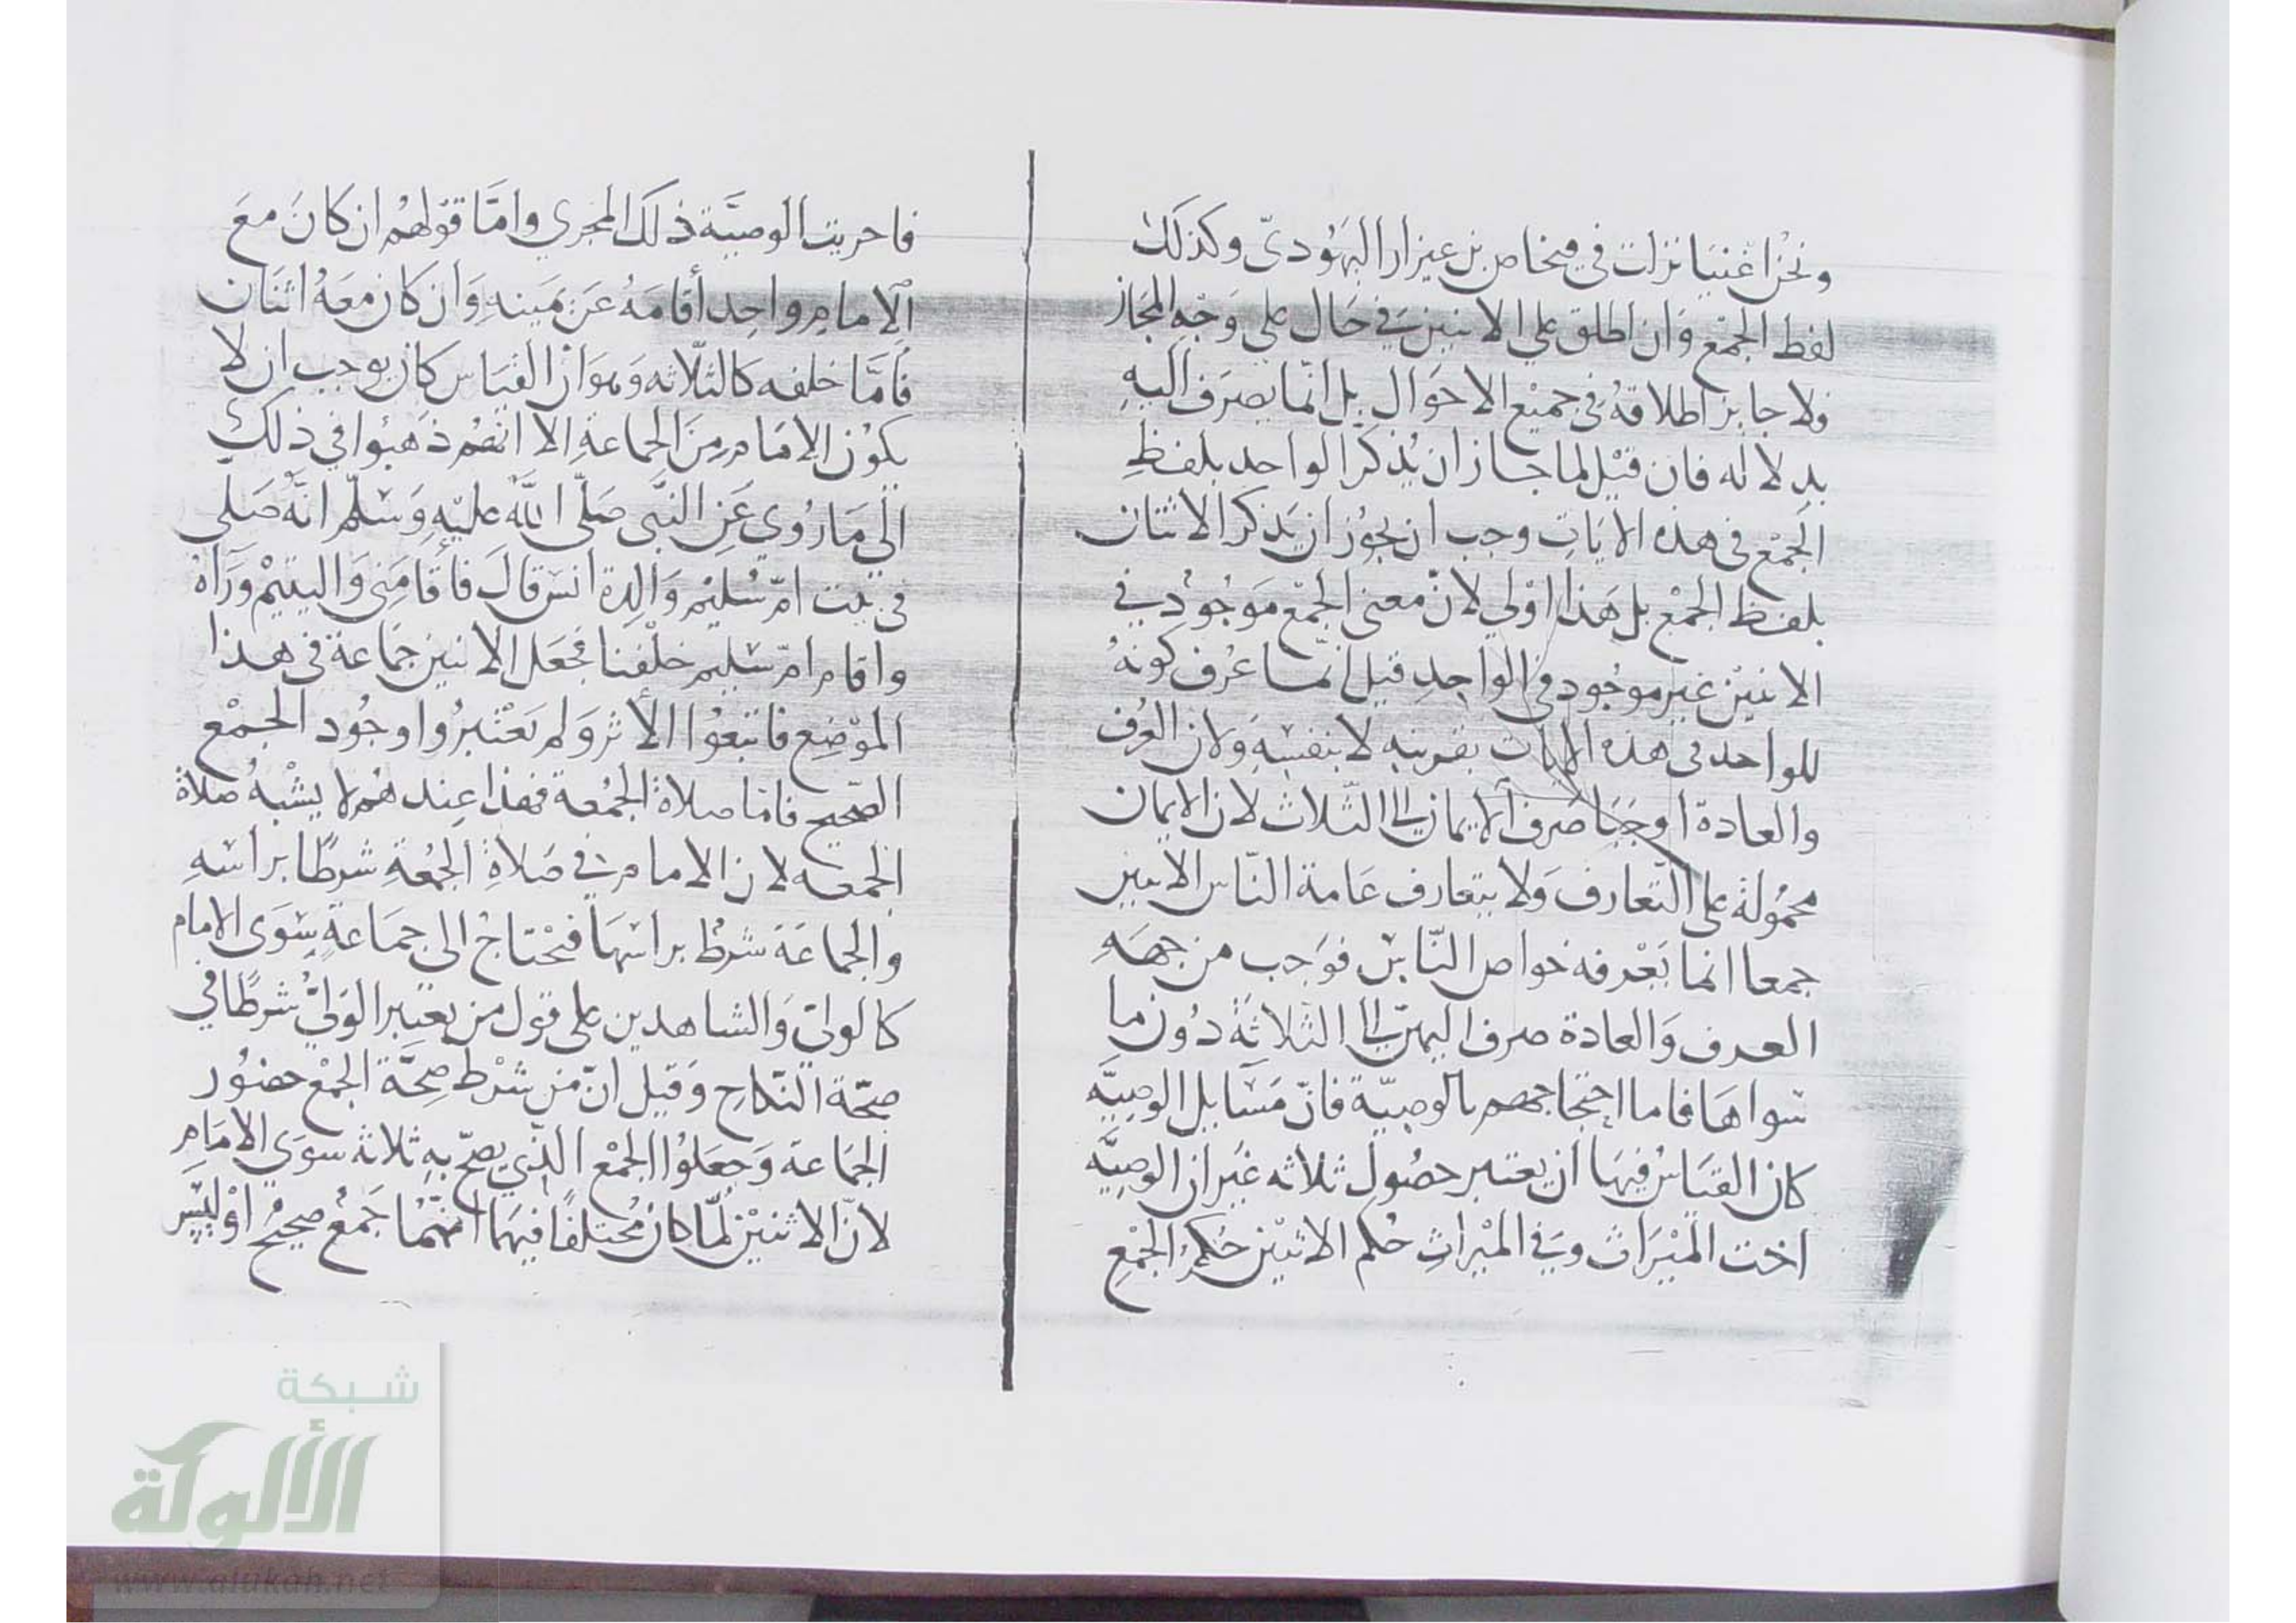 ونحن اغنيا نزلت في فنحاص بن عيزار اليهودىّ وكذلك
لفظ الجمْع وَان اطلق علي الاثنين في حَال على وَجْهِ المجَاز
ولا جايز اطلاقهُ في جميْع الاحوَال بل انما يصرَف اليهِ
بدلاله فان قيْل لما جاز ان يُذكر الواحد بلفظِ
الجَمْع فى هذه الايَاتِ وجب ان يجُوز ان يذكر الاثنان
بلفظ الجمْع بل هَذا اوْلي لانّ معنى الجمْع مَوجُودُ في
الاثنيْن غيْر موجُود في الواحِدِ قيل انّما عُرف كونهُ
للواحد فى هذه الايات بقرينه لا بنفسِهِ وَلان العُرف
والعادة اوجَبَا صَرف الايمان الى الثّلاث لان الايمان
محمُولة على التّعارف وَلا يتعارف عَامة النّاس الاثنين
جمعا انما يَعْرفه خواص النّاسِ فوَجب من جهَهِ
العرف وَالعادة صرف اليمين الى الثلاثةِ دُون ما
سواهَا فاما احتجاجهم بالوصيّة فانّ مَسَايل الوصيَّه
كان القيَاسُ فيهَا ان يعتبر حصُول ثلاثه غيَر ان الوصِيَّه
اخت الميْرَاث وَفي الميْراثِ حُكم الاثنيْن حُكمُ الجمْعِ
فاجريت الوصيَّة ذلكَ المجري وامَّا قوْلهُم ان كانَ معَ
الامامِ واحِد أقامَهُ عَن يمَينهِ وَان كان معَهُ اثنَان
فأمَّا خلفه كالثلّاثه وَهوَ انْ القيَاس كان يوجب ان لا
يكوُن الامَام مِنَ الجماعةِ الا انهُم ذهبُوا في ذلكَ
الى مَا رُوي عَنِ النبَّى صَلّى اللهُ عليْهِ وَسَلّم انّهُ صَلى
فى بيْت امّ سُليْم وَالِدة انس قالَ فأقامَنِى وَاليتيْم وَرَآهُ
وأقام امّ سُليم خلْفنا فجعَل الاثنين جَماعة فى هذا
الموْضِع فاتبعُوا الأثر وَلم يَعْتبرُوا وجُود الجمْع
الصّحيح فامّا صلاةُ الجمُعة فهذا عِندهُم لا يشْبهُ صَلاة
الجمعه لان الامام في صَلاةِ الجمُعةِ شرطًا براسهِ
والجماعَة شرطُ براسهَا فتحْتاجُ الى جمَاعةٍ سِوَى الامام
كالولىّ وَالشاهدين على قول من يعتبر الوَلىُّ شرطًا في
صحّة النّكاحِ وَقيل انّ من شرْط صِحَّة الجمْع حضوُر
الجمَاعة وَجعَلوُا الجمْع الذّي يصحّ بهِ ثلاثة سوَي الامَامِ
لانّ الاثنيْن لمَّا كان مُختلفًا فيهَا انّهُمَا جَمْعُ صحيحُ اوْ ليسَ
شبكة
الألوكة
www.alukah.net